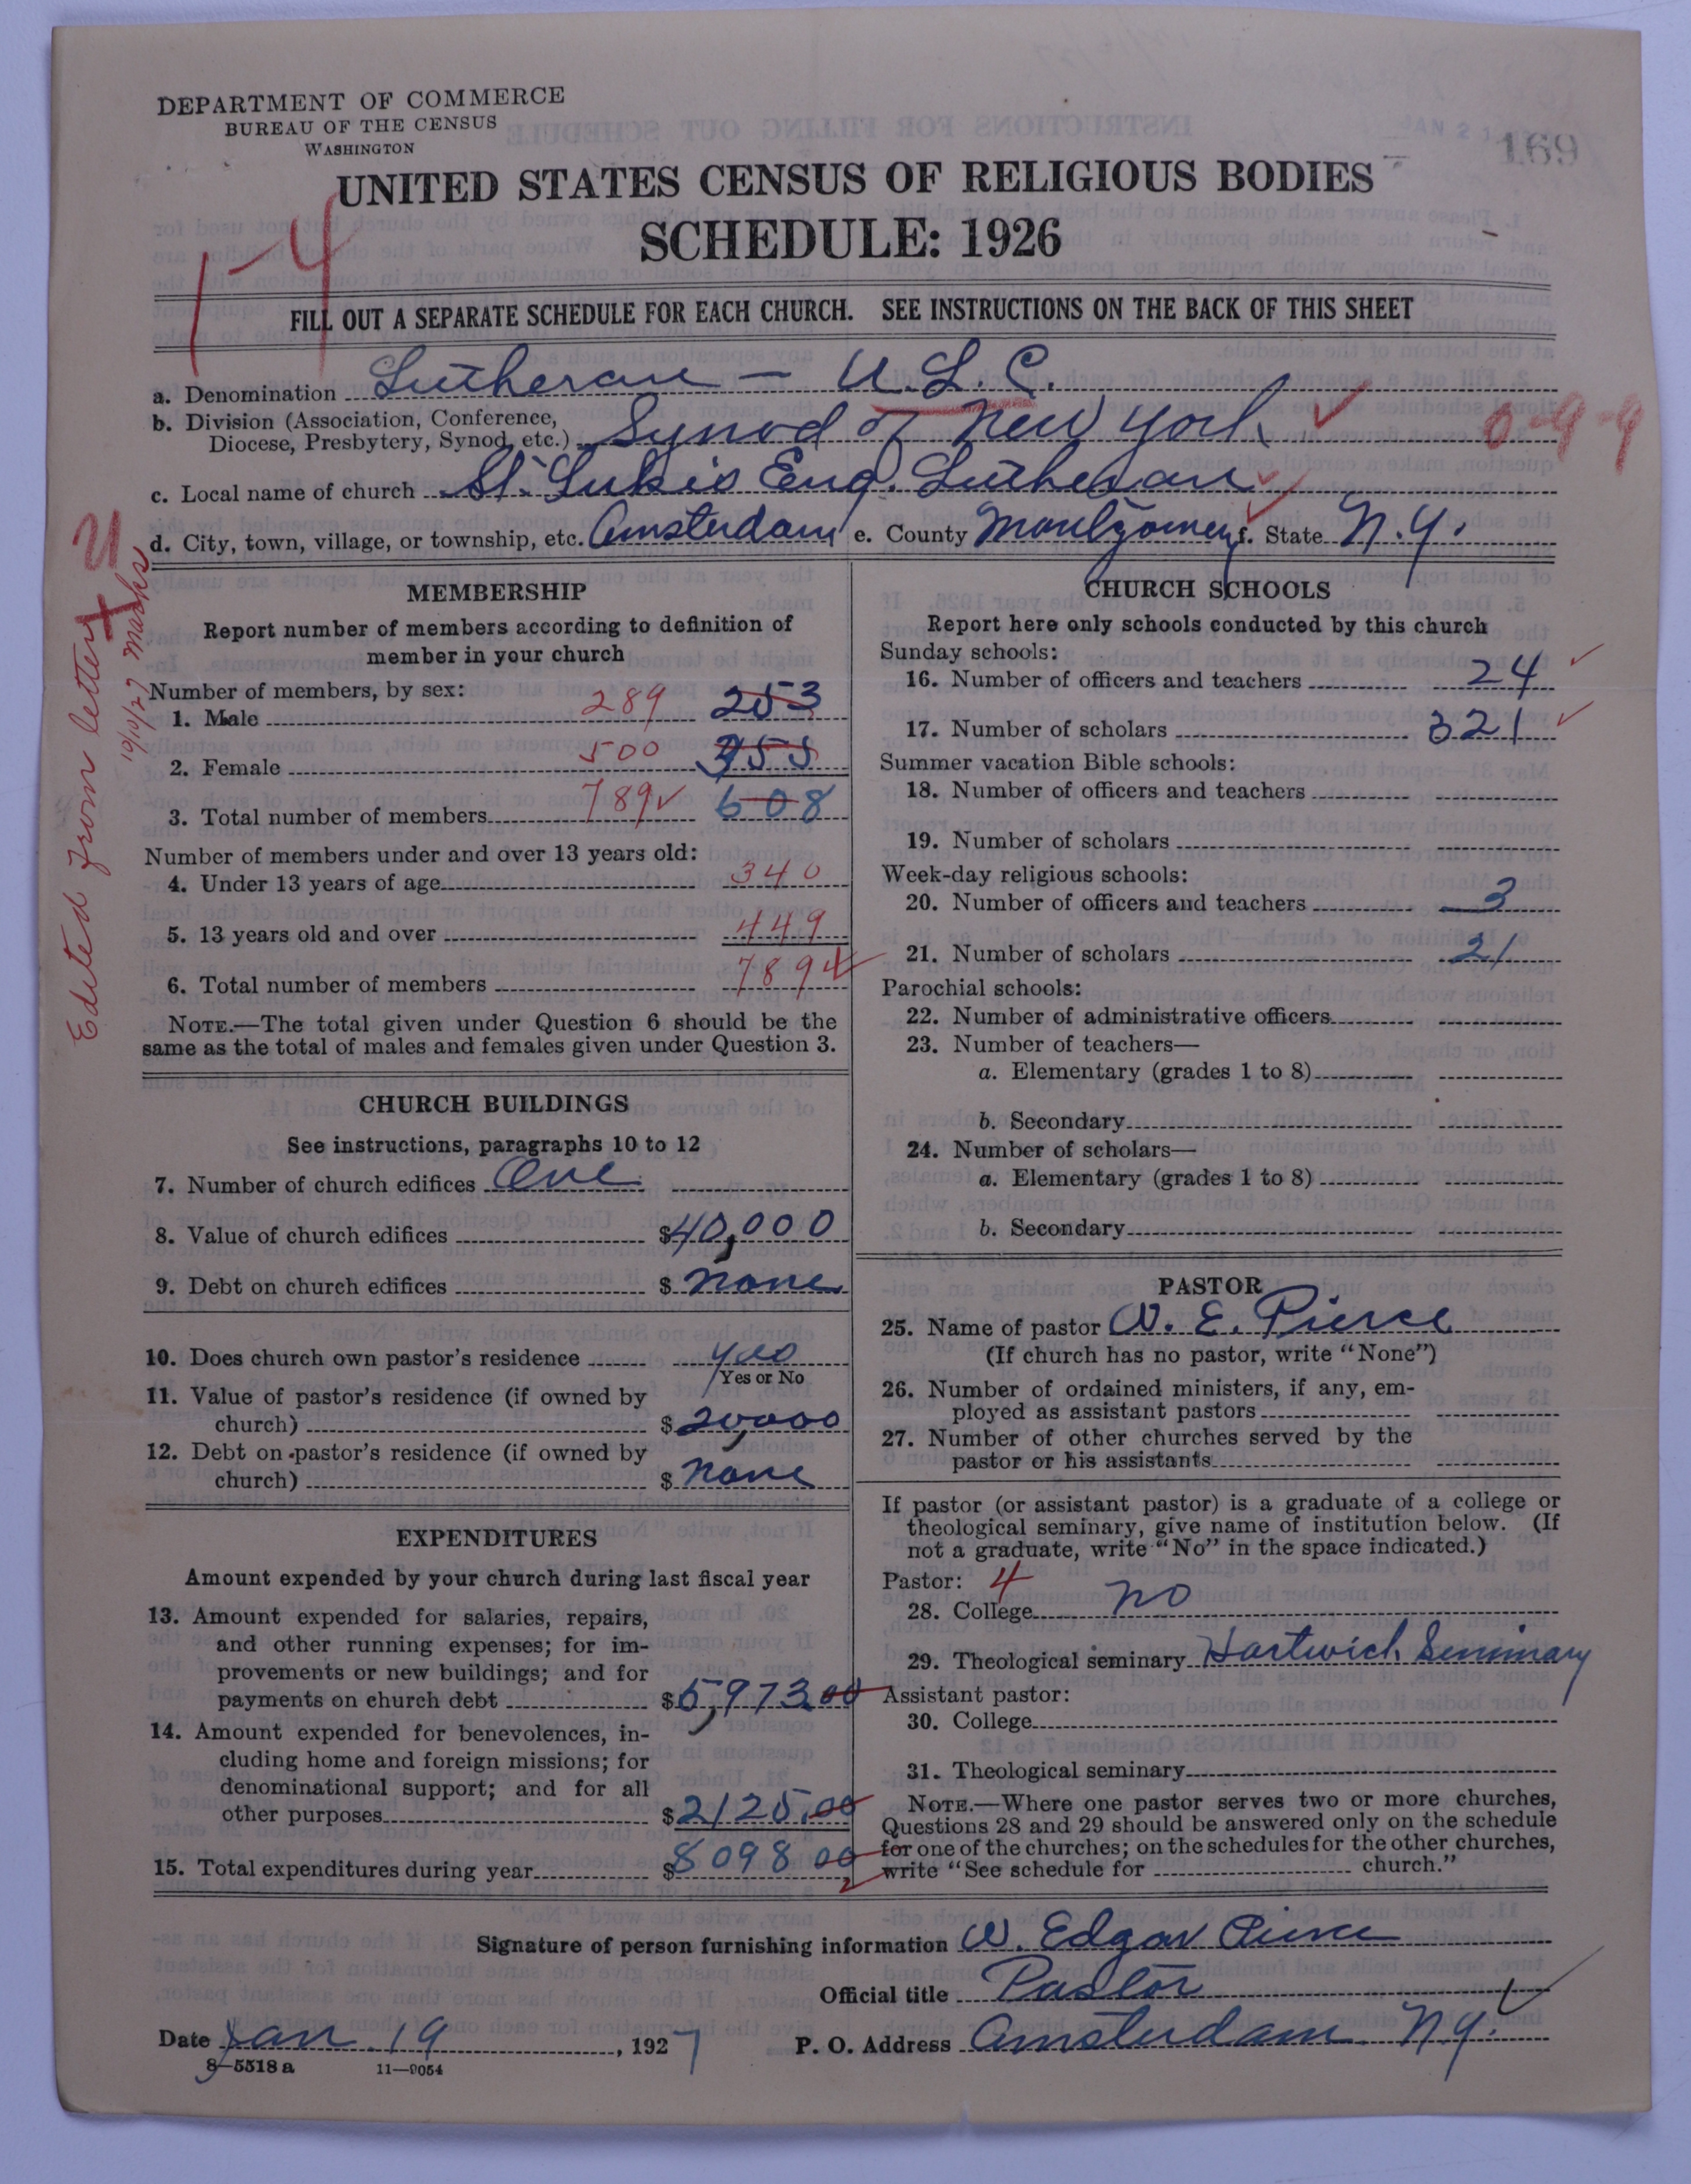 DEPARTMENT OF COMMERCE
BUREAU OF THE CENSUS
WASHINGTON
JAN 21
169
UNITED STATES CENSUS OF RELIGIOUS BODIES
SCHEDULE: 1926
1-4
FILL OUT A SEPARATE SCHEDULE FOR EACH CHURCH. SEE INSTRUCTIONS ON THE BACK OF THIS SHEET
a. Denomination Lutheran - U.L.C.
b. Division (Association, Conference,
Diocese, Presbytery, Synod, etc.) Synod of New York 0-9-9
c. Local name of church St. Luke's Eng. Lutheran
d. City, town, village, or township, etc. Amsterdam e. County Montgomery f. State N.Y.
Edited from letter
10/10/27 Marks
MEMBERSHIP
Report number of members according to definition of
member in your church
Number of members, by sex:
1. Male 289 253
2. Female 500 355
3. Total number of members 789 608
Number of members under and over 13 years old:
4. Under 13 years of age 340
5. 13 years old and over 449
6. Total number of members 789
NOTE.—The total given under Question 6 should be the
same as the total of males and females given under Question 3.
CHURCH BUILDINGS
See instructions, paragraphs 10 to 12
7. Number of church edifices One
8. Value of church edifices $40,000
9. Debt on church edifices $ None
10. Does church own pastor's residence yes
Yes or No
11. Value of pastor's residence (if owned by
church) $20,000
12. Debt on pastor's residence (if owned by
church) $ None
EXPENDITURES
Amount expended by your church during last fiscal year
13. Amount expended for salaries, repairs,
and other running expenses; for im-
provements or new buildings; and for
payments on church debt $5,973 00
14. Amount expended for benevolences, in-
cluding home and foreign missions; for
denominational support; and for all
other purposes $2125.00
15. Total expenditures during year $8098 00
CHURCH SCHOOLS
Report here only schools conducted by this church
Sunday schools:
16. Number of officers and teachers 24
17. Number of scholars 321
Summer vacation Bible schools:
18. Number of officers and teachers
19. Number of scholars
Week-day religious schools:
20. Number of officers and teachers 3
21. Number of scholars 21
Parochial schools:
22. Number of administrative officers
23. Number of teachers—
a. Elementary (grades 1 to 8)
b. Secondary
24. Number of scholars—
a. Elementary (grades 1 to 8)
b. Secondary
PASTOR
25. Name of pastor W. E. Pierce
(If church has no pastor, write "None")
26. Number of ordained ministers, if any, em-
ployed as assistant pastors
27. Number of other churches served by the
pastor or his assistants
If pastor (or assistant pastor) is a graduate of a college or
theological seminary, give name of institution below. (If
not a graduate, write "No" in the space indicated.)
Pastor: 4
28. College no
29. Theological seminary Hartwick Seminary
Assistant pastor:
30. College
31. Theological seminary
NOTE.—Where one pastor serves two or more churches,
Questions 28 and 29 should be answered only on the schedule
for one of the churches; on the schedules for the other churches,
write "See schedule for church."
Signature of person furnishing information W. Edgar Pierce
Official title Pastor
Date Jan 19, 1927 P. O. Address Amsterdam N.Y.
8-5518 a 11-9054